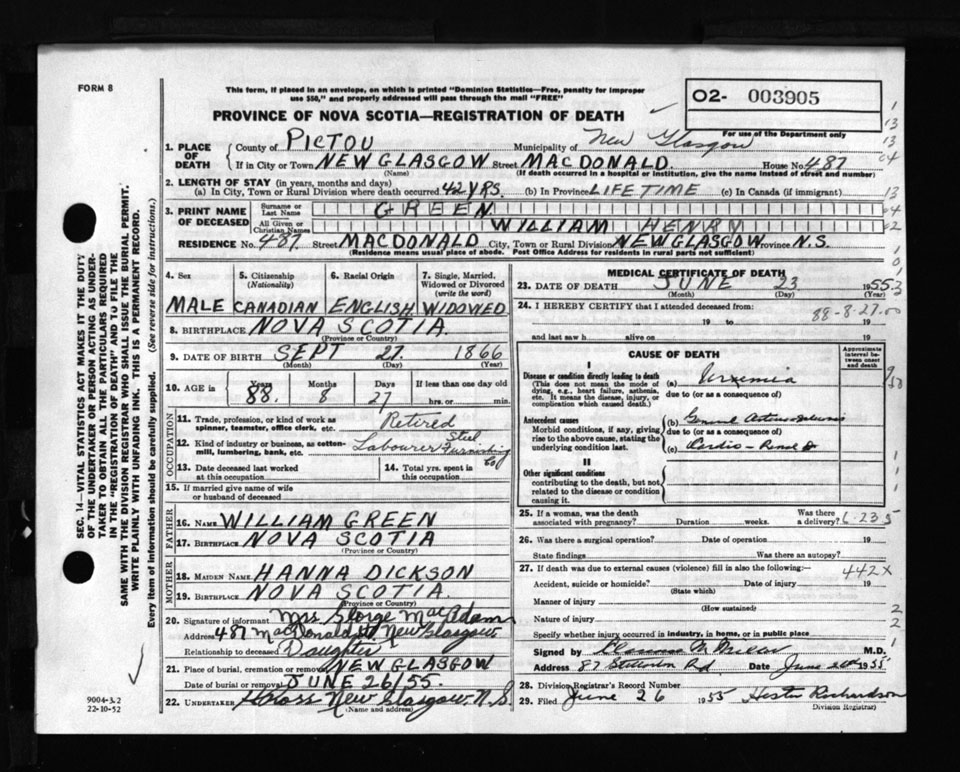 FORM 8
This form, if placed in an envelope, on which is printed "Dominion Statistics—Free, penalty for improper
use $50," and properly addressed will pass through the mail "FREE"
O2- 003905
For use of the Department only
PROVINCE OF NOVA SCOTIA—REGISTRATION OF DEATH
1. PLACE OF DEATH
County of PICTOU Municipality of New Glasgow
If in City or Town NEW GLASGOW Street MACDONALD House No. 487
(Name) (If death occurred in a hospital or institution, give the name instead of street and number)
2. LENGTH OF STAY (in years, months and days)
(a) In City, Town or Rural Division where death occurred 42 YRS. (b) In Province LIFE TIME (c) In Canada (if immigrant)
3. PRINT NAME OF DECEASED
Surname or Last Name GREEN
All Given or Christian Names WILLIAM HENRY
RESIDENCE No. 487 Street MACDONALD City, Town or Rural Division NEW GLASGOW Province N.S.
(Residence means usual place of abode. Post Office Address for residents in rural parts not sufficient)
4. Sex 5. Citizenship (Nationality) 6. Racial Origin 7. Single, Married, Widowed or Divorced (write the word)
MALE CANADIAN ENGLISH WIDOWED
8. BIRTHPLACE NOVA SCOTIA.
(Province or Country)
9. DATE OF BIRTH SEPT 27 1866
(Month) (Day) (Year)
10. AGE in Years Months Days If less than one day old
88. 8 27 hrs. or min.
OCCUPATION
11. Trade, profession, or kind of work as spinner, teamster, office clerk, etc. Retired
12. Kind of industry or business, as cotton-mill, lumbering, bank, etc. Labourer Steel Furnishing Co
13. Date deceased last worked at this occupation
14. Total yrs. spent in this occupation
15. If married give name of wife or husband of deceased
FATHER
16. NAME WILLIAM GREEN
17. BIRTHPLACE NOVA SCOTIA
(Province or Country)
MOTHER
18. MAIDEN NAME HANNA DICKSON
19. BIRTHPLACE NOVA SCOTIA.
(Province or Country)
20. Signature of informant Mrs George MacAdam
Address 487 MacDonald St New Glasgow
Relationship to deceased Daughter
21. Place of burial, cremation or removal NEW GLASGOW
Date of burial or removal JUNE 26/55.
22. UNDERTAKER New Glasgow, N.S.
(Name and address)
MEDICAL CERTIFICATE OF DEATH
23. DATE OF DEATH JUNE 23 1955
(Month) (Day) (Year)
24. I HEREBY CERTIFY that I attended deceased from: 88-8-27.00
19 to 19
and last saw h alive on 19
CAUSE OF DEATH
Approximate interval between onset and death
I
Disease or condition directly leading to death
(This does not mean the mode of dying, e.g., heart failure, asthenia, etc. It means the disease, injury, or complication which caused death.)
(a) Uremia
due to (or as a consequence of)
Antecedent causes
Morbid conditions, if any, giving rise to the above cause, stating the underlying condition last.
(b) General Arteriosclerosis
due to (or as a consequence of)
(c) Cardio-Renal D
II
Other significant conditions
contributing to the death, but not related to the disease or condition causing it.
25. If a woman, was the death associated with pregnancy? Duration weeks. Was there a delivery? 6-23 5
26. Was there a surgical operation? Date of operation 19
State findings Was there an autopsy?
27. If death was due to external causes (violence) fill in also the following:— 442X
Accident, suicide or homicide? Date of injury 19
(State which)
Manner of injury
(How sustained)
Nature of injury
Specify whether injury occurred in industry, in home, or in public place
Signed by M.D.
Address 87 Stellarton Rd Date June 1955
28. Division Registrar's Record Number
29. Filed June 26 1955 Hester Richardson
Division Registrar)
SEC. 14—VITAL STATISTICS ACT MAKES IT THE DUTY
OF THE UNDERTAKER OR PERSON ACTING AS UNDER-
TAKER TO OBTAIN ALL THE PARTICULARS REQUIRED
IN THE "REGISTRATION OF DEATH" AND TO FILE THE
SAME WITH THE DIVISION REGISTRAR WHO SHALL ISSUE THE BURIAL PERMIT.
WRITE PLAINLY WITH UNFADING INK. THIS IS A PERMANENT RECORD.
Every item of information should be carefully supplied. (See reverse side for instructions.)
9004-3.2
22-10-52